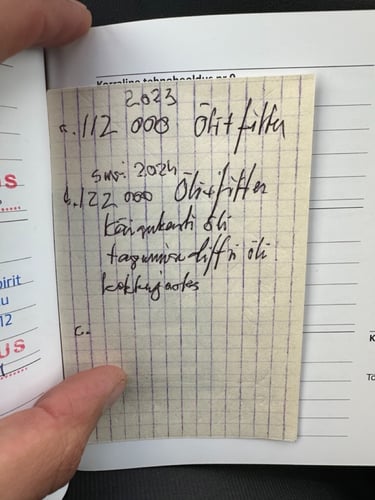 Korraline tehnohooldus nr 9
2023
a. 112 000 Õli+filter
suvi 2024
b. 122 000 Õli+filter
käigukasti õli
tagumise diffri õli
kokkuj
c.
us
pirit
u
12
US
K
To